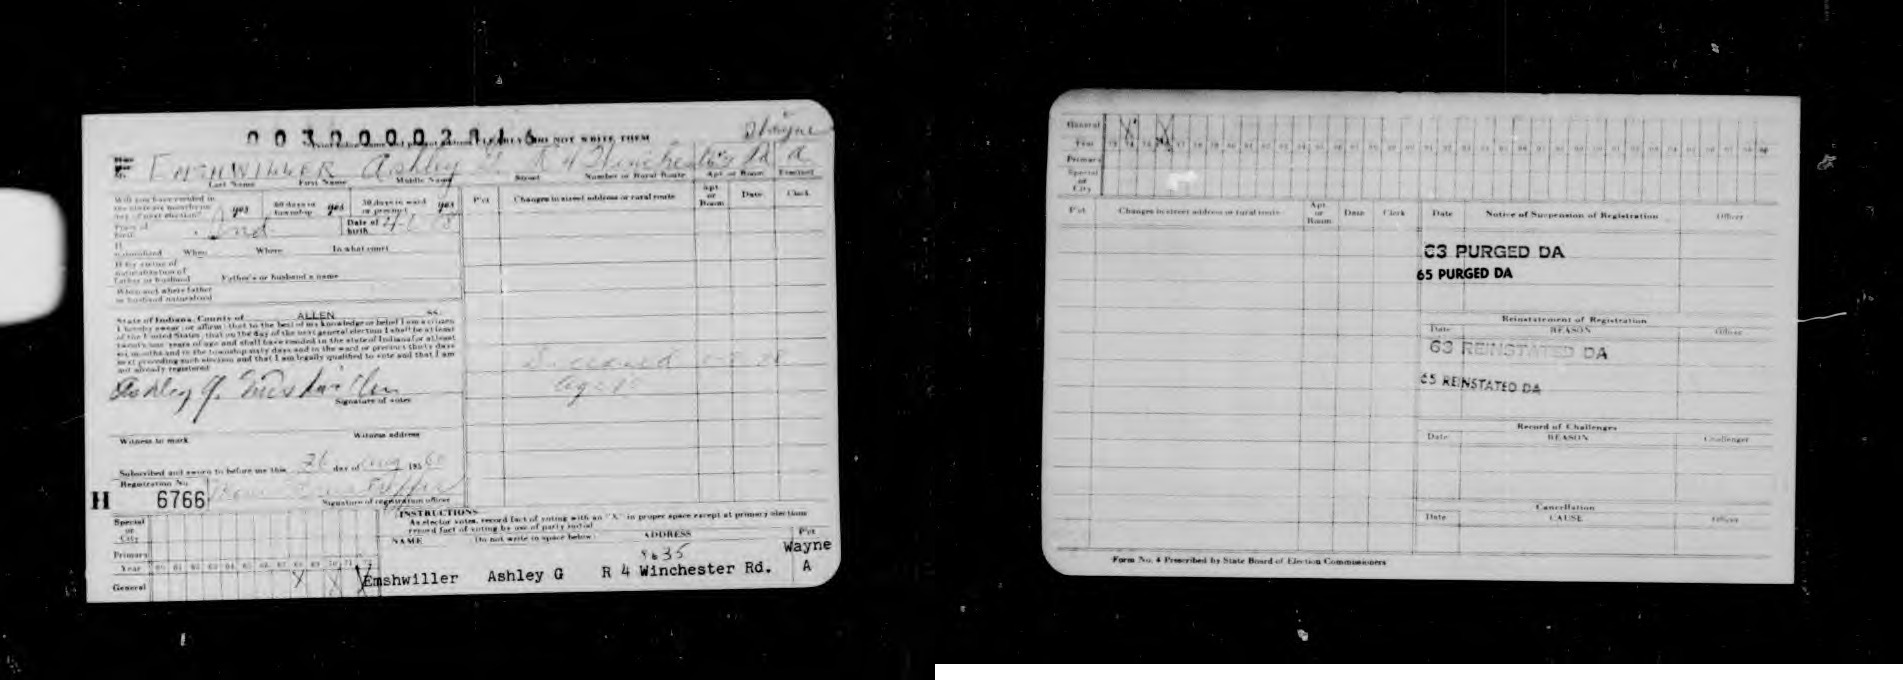 PLEASE DO NOT WRITE THEM
Wayne
EMSHWILLER Ashley G. R 4 Winchester Rd A
Last Name First Name Middle Name Street Number or Rural Route Apt or Room Precinct
Will you have resided in the state six months on day of next election? yes 60 days in township yes 30 days in ward or precinct yes
P'ct Changes in street address or rural route Apt or Room Date Clerk
Place of birth Ind Date of birth
If naturalized When Where In what court
If by virtue of naturalization of father or husband Father's or husband's name
When and where father or husband naturalized
State of Indiana, County of ALLEN ss:
I hereby swear (or affirm) that to the best of my knowledge or belief I am a citizen
of the United States; that on the day of the next general election I shall be at least
twenty-one years of age and shall have resided in the state of Indiana for at least
six months and in the township sixty days and in the ward or precinct thirty days
next preceding such election and that I am legally qualified to vote and that I am
not already registered
Deceased
Ashley G. Emshwiller
Signature of voter
Witness to mark Witness address
Subscribed and sworn to before me this 26 day of Aug 1960
Registration No.
H 6766
Signature of registration officer
INSTRUCTIONS
As elector votes, record fact of voting with an "X" in proper space except at primary elections
record fact of voting by use of party initial
NAME Do not write in space below ADDRESS P'ct
Special or City
Primary
Year 60 61 62 63 64 65 66 67 68 69 70 71
General X X X
9635
Emshwiller Ashley G R 4 Winchester Rd. Wayne A
General X X
Year
Primary
Special or City
P'ct Changes in street address or rural route Apt or Room Date Clerk Date Notice of Suspension of Registration Officer
63 PURGED DA
65 PURGED DA
Reinstatement of Registration
Date REASON Officer
63 REINSTATED DA
65 REINSTATED DA
Record of Challenges
Date REASON Challenger
Cancellation
Date CAUSE Officer
Form No. 4 Prescribed by State Board of Election Commissioners